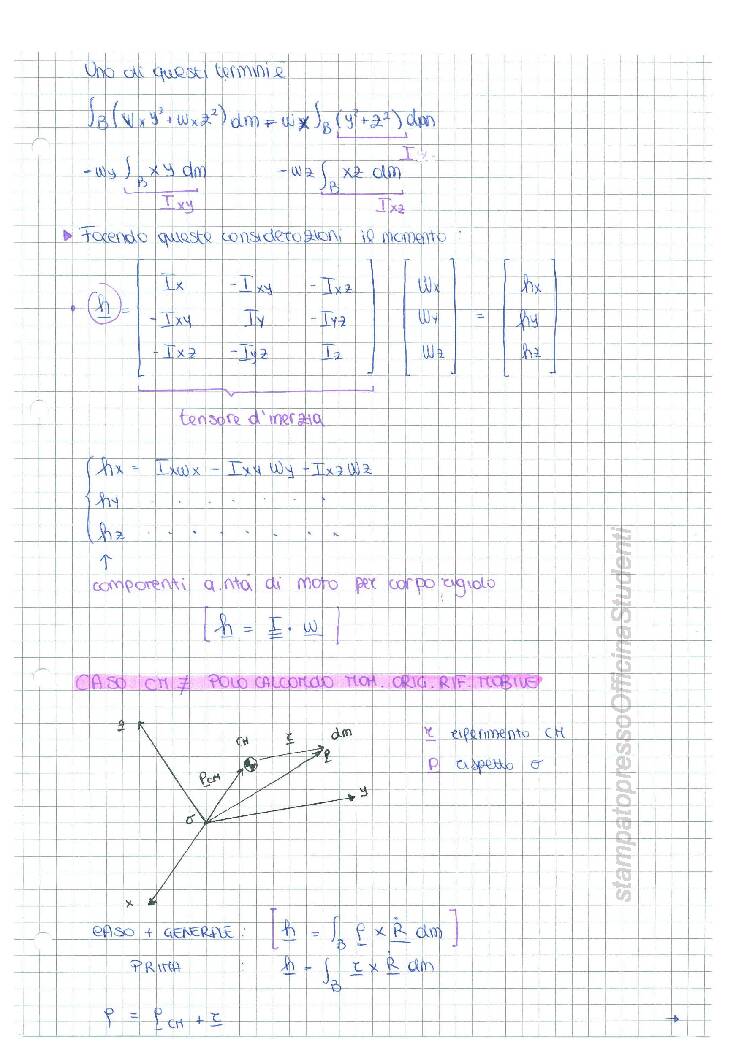 Uno di questi termini è
∫B (ωx y² + ωx z²) dm = ωx ∫B (y² + z²) dm
Ix
-ωy ∫B xy dm -ωz ∫B xz dm
Ixy Ixz
▶ Facendo queste considerazioni il momento :
• h = [ Ix -Ixy -Ixz ] [ ωx ] = [ hx ]
[ -Ixy Iy -Iyz ] [ ωy ] [ hy ]
[ -Ixz -Iyz Iz ] [ ωz ] [ hz ]
tensore d'inerzia
{ hx = Ixωx - Ixy ωy - Ixz ωz
hy . . . . . . .
hz . . . . . . .
↑
componenti q.ntà di moto per corpo rigido
[ h = I · ω ]
CASO CM ≠ POLO CALCOLO MOM. ORIG. RIF. MOBILE
z
CM r dm
ρ
ρCM
y
σ
x
r riferimento CM
ρ rispetto σ
CASO + GENERALE : [ h = ∫B ρ × Ṙ dm ]
PRIMA : h = ∫B r × Ṙ dm
ρ = ρCM + r
→
stampatopressoOfficinaStudenti